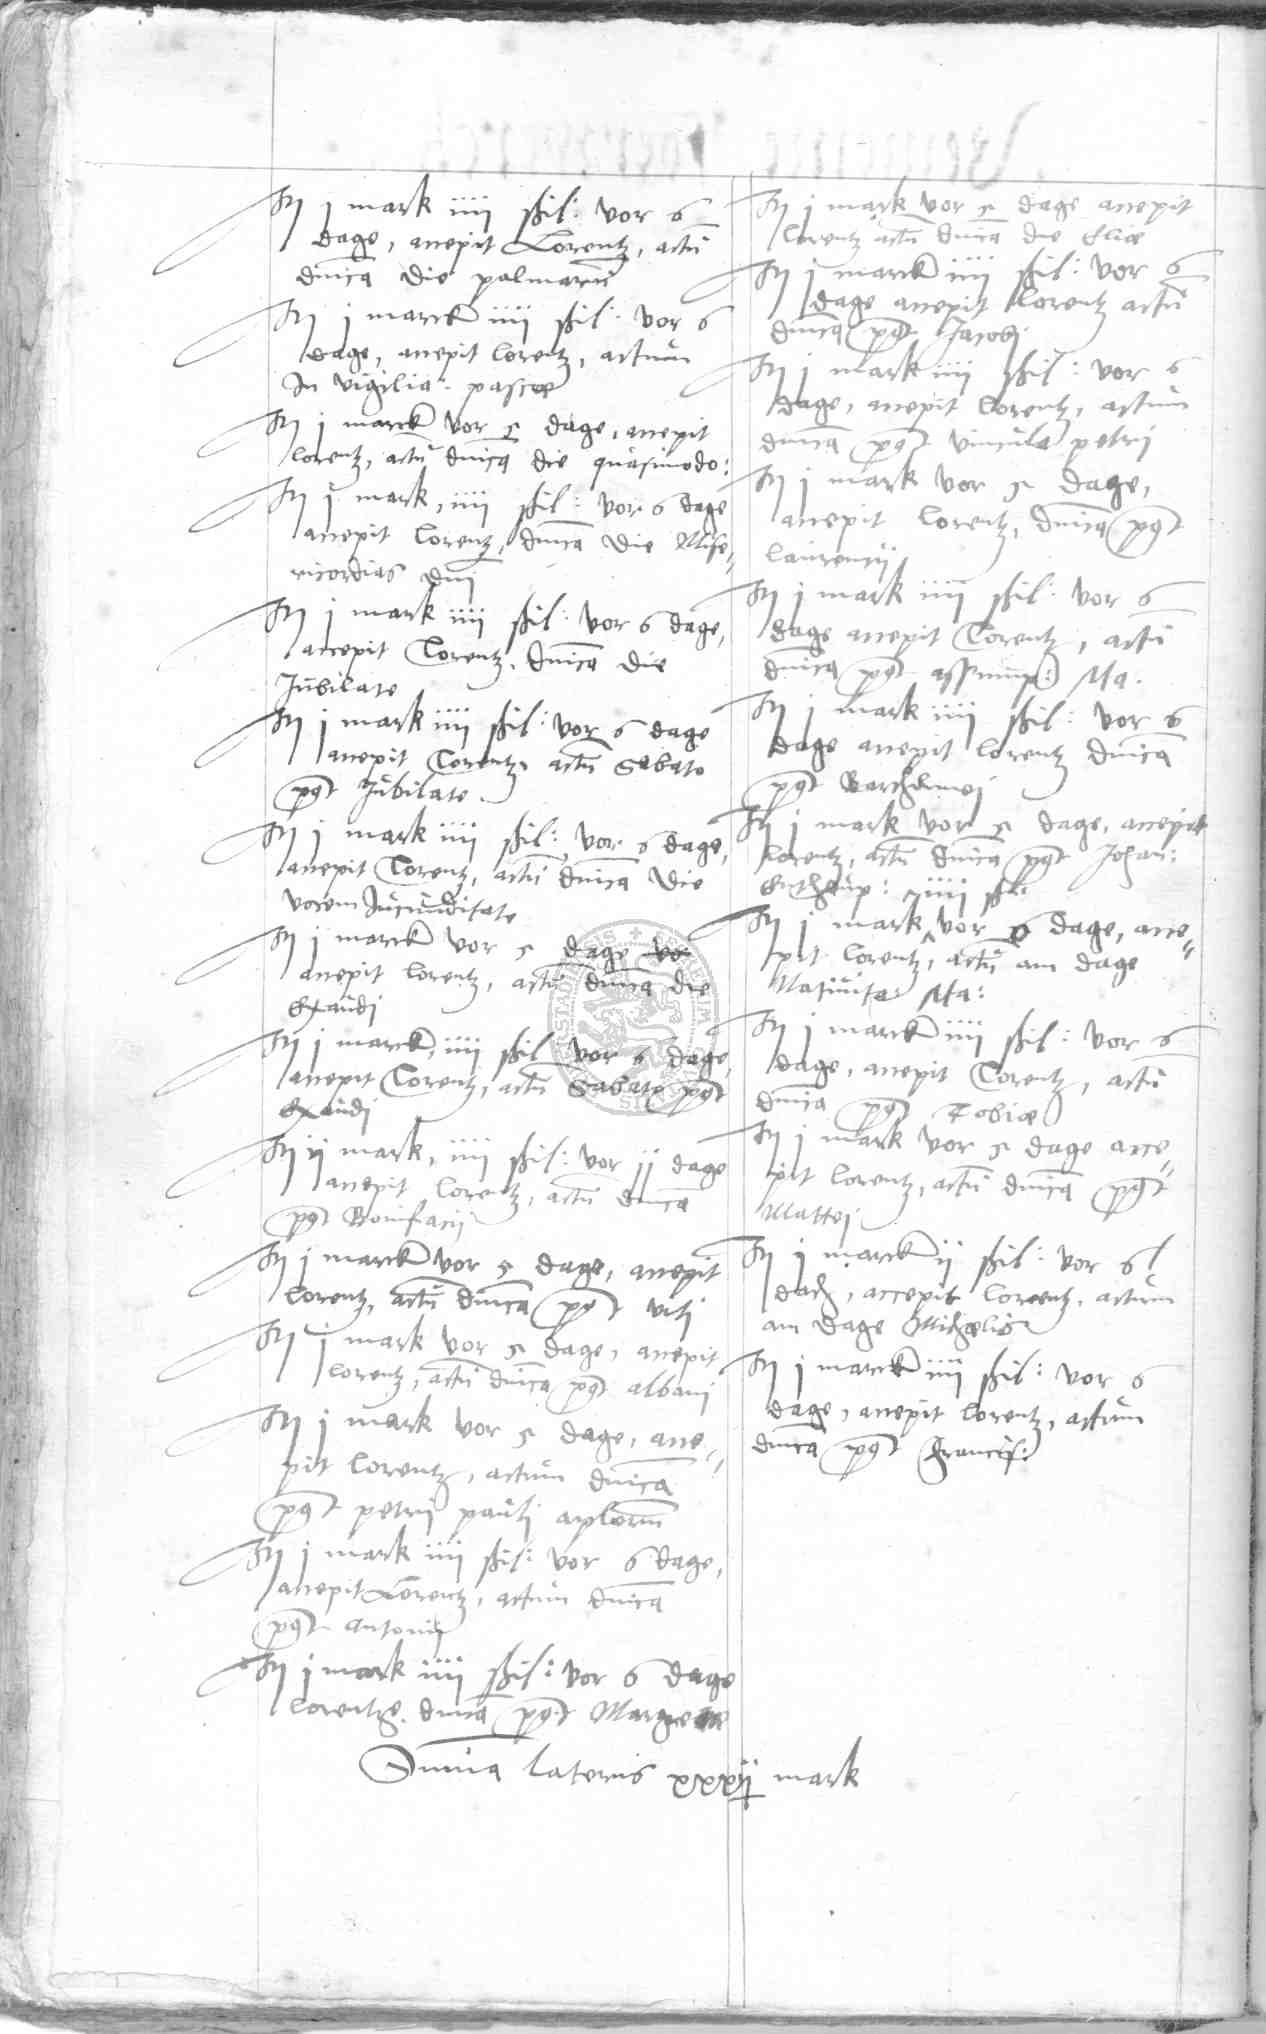 It j mark iiij ßhil: vor 6
dage, accepit Lorentz, actū
dnīca die palmarū
It j marck iiij ßhil: vor 6
dage, accepit lorentz, actum
In vigilia pasce
It j marck vor 5 dage, accepit
lorentz, actū dnīca die quasimodo:
It j mark, iiij ßhil: vor 6 dage
accepit lorentz, dnīca die Mise„
ricordias dnī
It j mark iiij ßhil: vor 6 dage,
accepit Lorentz, dnīca die
Jubilate
It j mark iiij ßhil: vor 6 dage
accepit Lorentz, actū Sabato
post Jubilate
It j mark iiij ßhil: vor 6 dage,
accepit Lorentz, actū dnīca die
vocem Jucunditate
It j marck vor 5 dage vor
accepit lorentz, actū dnīca die
Exaudi
It j marck, iiij ßhil vor 6 dage,
accepit Lorentz, actū Sabato post
Exaudi
It ij mark, iiij ßhil: vor ij dage
accepit lorentz, actū dnīca
post Bonifacij
It j marck vor 5 dage, accepit
lorentz, actū dnīca post viti
It j mark vor 5 dage, accepit
lorentz, actū dnīca post albani
It j mark vor 5 dage, acce„
pit lorentz, actum dnīca
post petrij pauli aplorum
It j mark iiij ßhil: vor 6 dage,
accepit Lorentz, actum dnīca
post Antonij
It j mark iiij ßhil: vor 6 dage
lorentz. dnīca post
Suma lateris xxxij mark
It j mark vor 5 dage accepit
lorentz actū dnīca die Eliæ
It j marck iiij ßhil: vor 6
dage accepit lorentz actū
dnīca post Jacobi
It j mark iiij ßhil: vor 6
dage, accepit lorentz, actum
dnīca post vincula petrij
It j mark vor 5 dage,
accepit lorentz, dnīca post
laurencij
It j mark iiij ßhil: vor 6
dage accepit Lorentz, actū
dnīca post assump: Ma.
It j mark iiij ßhil: vor 6
dage accepit lorentz dnīca
post
It j mark vor 5 dage, accepit
lorentz, actū dnīca post Johan:
Enthaup: iiij ßhil:
It j mark vor 6 dage, acce„
pit lorentz, actū am dage
Nativita: Ma:
It j marck iiij ßhil: vor 6
dage, accepit Lorentz, actū
dnīca post Tobiæ
It j mark vor 5 dage acce„
pit lorentz, actū dnīca post
Mattei
It j marck ij ßhil: vor
dach, accepit lorentz, actum
am dage Michaelis
It j marck iiij ßhil: vor 6
dage, accepit lorentz, actum
dnīca post Francis: